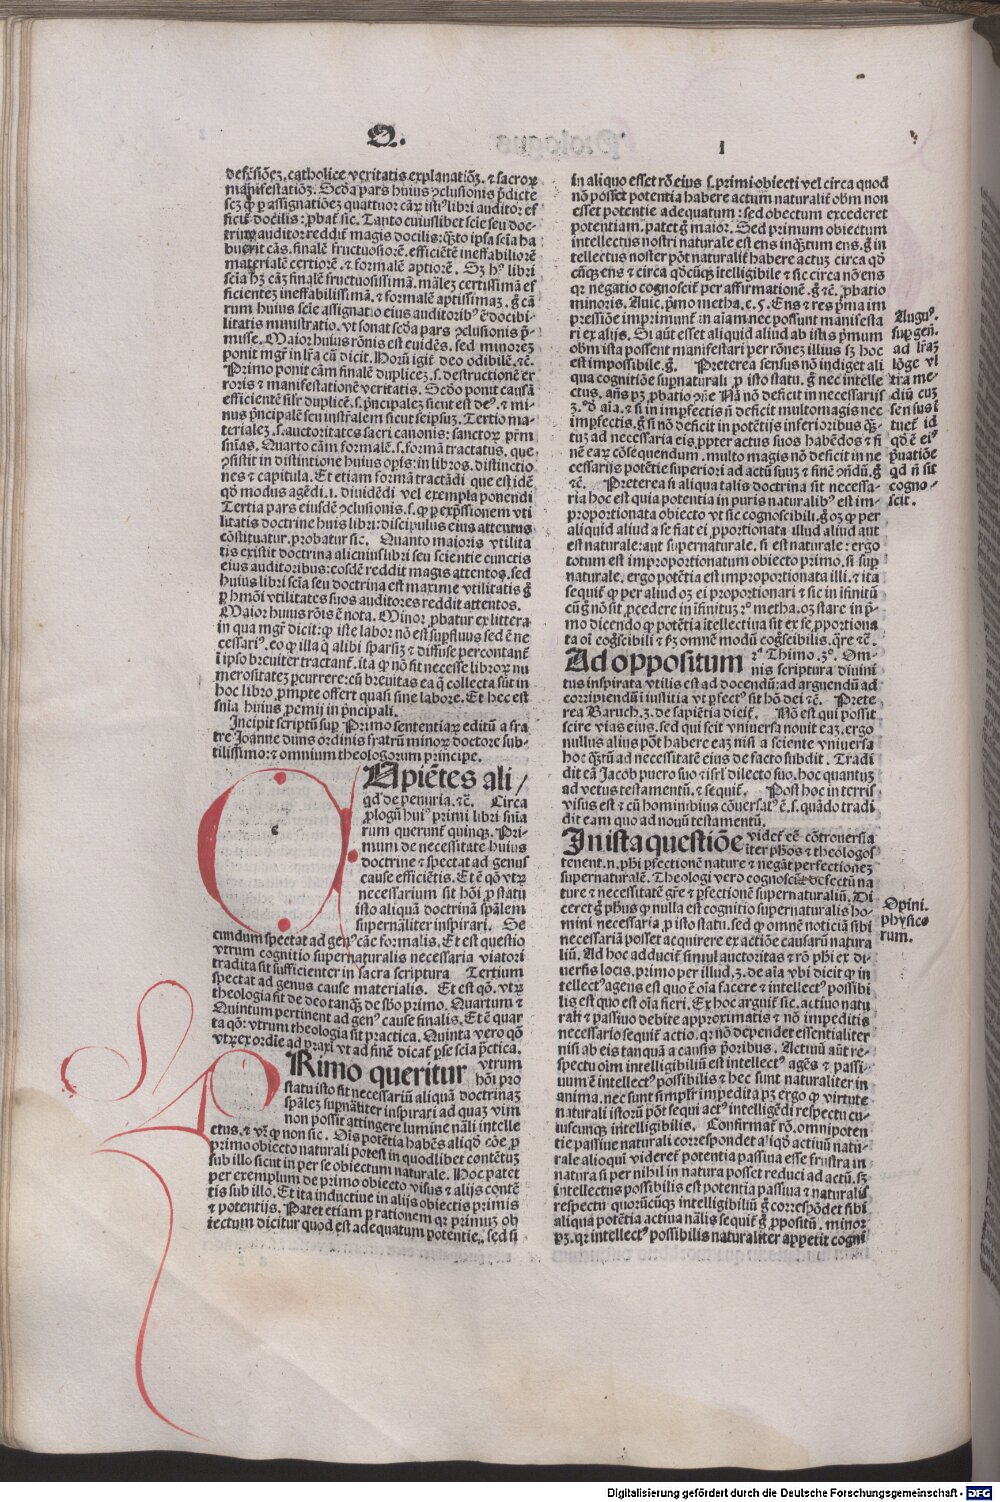 Q.
1
defēsiōez. catholice veritatis explanatiōz. ⁊ sacroꝝ
manifestatiōz. Secda pars huius ꝯclusionis p̄dicte
scz ꝙ ꝑ assignatiōez quattuor cāꝝ isti⁹ libri auditor ef
ficit̄ docilis: ꝓbat̄ sic. Tanto cuiuslibet scie seu doc-
trine auditor reddit̄ magis docilis: q̄sto ipsa scīa ha
buerit cās. finalē fructuosiorē. efficiētē ineffabiliorē
materialē certiorē. ⁊ formalē aptiorē. Sz h⁹ libri
scīa hz cāz finalē fructuosissimā. mālez certissimā ef
ficientez ineffabilissimā. ⁊ formalē aptissimaz. ḡ cā
rum huius scīe assignatio eius auditorib⁹ ē docibi-
litatis ministratio. vt sonat scd̄a pars ꝯclusionis p̄-
misse. Maior huius rōnis est euidēs. sed minorez
ponit mgr̄ in lr̄a cū dicit. Horū igit̄ deo odibilē. ⁊c̄.
Primo ponit cām finalē duplicez. s. destructionē er
roris ⁊ manifestationē veritatis. Secd̄o ponit causā
efficiētē silr̄ duplicē. s. p̄ncipalez sicut est de⁹. ⁊ mi-
nus p̄ncipalē seu instr̄alem sicut seipsuz. Tertio ma-
terialez. s. auctoritates sacri canonis: sanctoꝝ pr̄m
snīas. Quarto cām formalē. s. formā tractatus. que
ꝯsistit in distintione huius op̄is: in libros. distinctio
nes ⁊ capitula. Et etiam formā tractādi que est idē
qd̄ modus agēdi. i. diuidēdi vel exempla ponendi
Tertia pars eiusdē ꝯclusionis. s. ꝙ ꝑ exp̄ssionem vti
litatis doctrine huis libri: discipulus eius attentus
cōstituatur. probatur sic. Quanto maioris vtilita
tis existit doctrina alicuius libri seu scientie cunctis
eius auditoribus: eosdē reddit magis attentos. sed
huius libri scīa seu doctrina est maxime vtilitatis ḡ
ꝑ hmōi vtilitates suos auditores reddit attentos.
Maior huius rōis ē nota. Minor ꝓbatur ex littera
in qua mgr̄ dicit: ꝙ iste labor nō est supfluus sed ē ne
cessari⁹. eo ꝙ illa q̄ alibi sparsiz ⁊ diffuse percontant̄
ī ipso breuiter tractant̄. ita ꝙ nō sit necesse libroꝝ nu
merositatez ꝑcurrere: cū breuitas ea q̄ collecta sūt in
hoc libro ꝓmpte offert quasi sine labore. Et hec est
snīa huius ꝓemij in p̄ncipali.
Incipit scriptū suꝑ Primo sententiaꝝ editū a fra
tre Joanne duns ordinis fratrū minoꝝ doctore sub-
tilissimo: ⁊ omnium theologorum principe.
Cupiētes ali/
qd̄ de penuria. ⁊c̄. Circa
ꝓlogū hui⁹ primi libri snīa
rum querunt̄ quinqꝫ. Pri-
mum de necessitate huius
doctrine ⁊ spectat ad genus
cause efficiētis. Et ē qō vtꝝ
necessarium sit hōi ꝓ statu
isto aliquā doctrinā sp̄alem
supernāliter inspirari. Se
cundum spectat ad gen⁹ cāe formalis. Et est questio
vtrum cognitio supernaturalis necessaria viatori
tradita sit sufficienter in sacra scriptura Tertium
spectat ad genus cause materialis. Et est qō. vtꝝ
theologia sit de deo tanqꝫ de sbo primo. Quartum ⁊
Quintum pertinent ad gen⁹ cause finalis. Et ē quar
ta qō: vtrum theologia sit practica. Quinta vero qō
vtꝝ ex ordīe ad praxi vt ad finē dicat̄ ꝑse scīa p̄ctica.
Primo queritur vtrum
hōi pro
statu isto sit necessariū aliquā doctrinaz
sp̄alez sup̄nāliter inspirari ad quaz vim
non possit attingere lumine nāli intelle
ctus. ⁊ vr̄ ꝙ non sic. Ois potētia habēs aliqd̄ cōe ꝓ
primo obiecto naturali potest in quodlibet contētuz
sub illo sicut in per se obiectum naturale. Hoc patet
per exemplum de primo obiecto visus ⁊ alijs contē
tis sub illo. Et ita inductiue in alijs obiectis primis
⁊ potentijs. Patet etiam ꝑ rationem qꝛ primuz ob
iectum dicitur quod est adequatum potentie. sed si
in aliquo esset rō eius s. primi obiecti vel circa quod
nō posset potentia habere actum naturalit̄ obm non
esset potentie adequatum: sed obectum excederet
potentiam. patet ḡ maior. Sed primum obiectum
intellectus nostri naturale est ens inqꝫtum ens. ḡ in
tellectus noster pōt naturalit̄ habere actuz circa qd̄
cūqꝫ ens ⁊ circa qd̄cūqꝫ ītelligibile ⁊ sic circa nō ens
qꝛ negatio cognoscit̄ per affirmationē. ḡ ⁊c̄. ꝓbatio
minoris. Auic. pͥmo metha. c. 5. Ens ⁊ res pͥma im
pressiōe imprimunt̄ in aīam nec possunt manifesta
ri ex alijs. Si aūt esset aliquid aliud ab istis pͥmum
obm ista possent manifestari per rōnez illius sz hoc
est impossibile. ḡ. Preterea sensus nō indiget ali
qua cognitiōe sup̄naturali ꝓ isto statu. ḡ nec intelle
ctus. añs pz ꝓbatio ꝯñe Nā nō deficit in necessarijs
3.⁰ d̄ aīa. ⁊ si in imꝑfectis n̄ deficit multomagis nec
imꝑfectis. ḡ si nō deficit in potētijs inferioribus qꝫ-
tuz ad necessaria eis. ꝓpter actus suos habēdos ⁊ fi
nē eaꝝ cōsequendum. multo magis nō deficit in ne
cessarijs potētie superiori ad actū suuz ⁊ finē ꝯñdū. ḡ
⁊c̄. Preterea si aliqua talis doctrina sit necessa-
ria hoc est quia potentia in puris naturalib⁹ est im-
proportionata obiecto vt sic cognoscibili. ḡ oꝫ ꝙ per
aliquid aliud a se fiat ei ꝓportionata. illud aliud aut
est naturale: aut supernaturale. si est naturale: ergo
totum est improportionatum obiecto primo. si suꝑ
naturale. ergo potētia est improportionata illi. ⁊ ita
sequit̄ ꝙ per aliud oꝫ ei proportionari ⁊ sic in īfinitū
cū ḡ nō sit ꝓcedere in īfinituz 2.⁰ metha. oꝫ stare in p̄-
mo dicendo ꝙ potētia ītellectiua sit ex se ꝓportiona
ta oī coḡscibili ⁊ ẜm omnē modū coḡscibilis. q̄re ⁊c̄.
Ad oppositum 2.ᵃ Thimo. 3.⁰. Om-
nis scriptura diuini
tus inspirata vtilis est ad docendū: ad arguendū ad
corripiendū ī iustitia vt ꝑfect⁹ sit hō dei ⁊c̄. Prete
rea Baruch. 3. de sapiētia dicit̄. Nō est qui possit
scire vias eius. sed qui scit vniuersa nouit eaz. ergo
nullus alius pōt habere eaz nisi a sciente vniuersa
hoꝝ qꝫtū ad necessitatē eius de facto subdit. Tradi
dit eā Jacob puero suo ⁊ isrl̄ dilecto suo. hoc quantuz
ad vetus testamentū. ⁊ sequit̄. Post hoc in terris
visus est ⁊ cū hominibus cōuersat⁹ ē. s. quādo tradi
dit eam quo ad nouū testamentū.
In ista questiōe videt̄ eē cōtrouersia
īter ph̄os ⁊ theologos
tenent. n. ph̄i ꝑfectionē nature ⁊ negāt perfectionez
supernaturalē. Theologi vero cognoscūt defectū na
ture ⁊ necessitatē gr̄e ⁊ ꝑfectionē supernaturaliū. Di
ceret ḡ ph̄us ꝙ nulla est cognitio supernaturalis ho-
mini necessaria ꝓ isto statu. sed ꝙ omnē noticiā sibi
necessariā posset acquirere ex actiōe causarū natura
liū. Ad hoc adducit̄ simul auctoritas ⁊ rō ph̄i ex di-
uersis locis. primo per illud. 3. de aīa vbi dicit ꝙ in
tellect⁹ agens est quo ē oīa facere ⁊ intellect⁹ possibi
lis est quo est oīa fieri. Ex hoc arguit̄ sic. actiuo natu
rali ⁊ passiuo debite approximatis ⁊ nō impeditis
necessario sequit̄ actio. qꝛ nō dependet essentialiter
nisi ab eis tanquā a causis p̄oribus. Actiuū aūt re-
spectu oīm intelligibiliū est intellect⁹ agēs ⁊ passi-
uum ē intellect⁹ possibilis ⁊ hec sunt naturaliter in
anima. nec sunt simplr̄ impedita pꝫ ergo ꝙ virtute
naturali istorū pōt sequi act⁹ intelligēdi respectu cu-
iuscunqꝫ intelligibilis. Confirmat̄ rō. omni poten
tie passiue naturali correspondet aliqd̄ actiuū natu-
rale alioqui videret̄ potentia passiua esse frustra in
natura si per nihil in natura posset reduci ad actū. sz
intellectus possibilis est potentia passiua ⁊ naturalis
respectu quorūcūqꝫ intelligibiliū ḡ correspōdet sibi
aliqua potētia actiua nālis sequit̄ ḡ ꝓpositū. minor
pꝫ. qꝛ intellect⁹ possibilis naturaliter appetit cogni
Augu⁹.
suꝑ geñ.
ad lr̄aꝫ
lōge vl
tra me-
diū cuz
sensus ī
tuet̄ id
qd̄ ē ei⁹
p̄uatiōe
qd̄ n̄ sit
cogno-
scit.
Opini.
physico
rum.
Digitalisierung gefördert durch die Deutsche Forschungsgemeinschaft - DFG